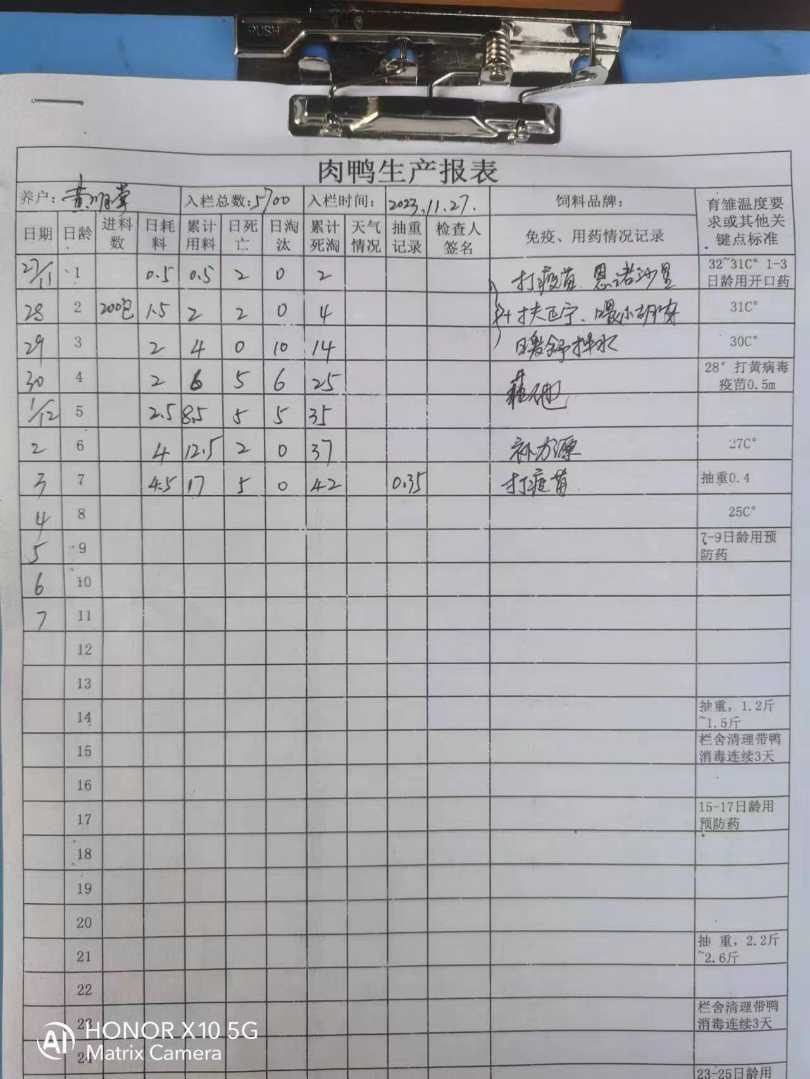 PUSH
肉鸭生产报表
养户: 入栏总数:5700 入栏时间: 2023.11.27. 饲料品牌: 育雏温度要求或其他关键点标准
日期 日龄 进料数 日耗料 累计用料 日死亡 日淘汰 累计死淘 天气情况 抽重记录 检查人签名 免疫、用药情况记录
27/11 1 0.5 0.5 2 0 2 打疫苗 恩诺沙星 32~31C° 1-3日龄用开口药
28 2 200包 1.5 2 2 0 4 31C°
29 3 2 4 0 10 14 30C°
30 4 2 6 5 6 25 28° 打黄病毒疫苗0.5m
1/12 5 2.5 8.5 5 5 35
2 6 4 12.5 2 0 37 27C°
3 7 4.5 17 5 0 42 0.35 打疫苗 抽重0.4
4 8 25C°
5 9 7-9日龄用预防药
6 10
7 11
12
13
14 抽重, 1.2斤~1.5斤
15 栏舍清理带鸭消毒连续3天
16
17 15-17日龄用预防药
18
19
20
21 抽 重, 2.2斤~2.6斤
22
23 栏舍清理带鸭消毒连续3天
24
23-25日龄用
HONOR X10 5G
Matrix Camera